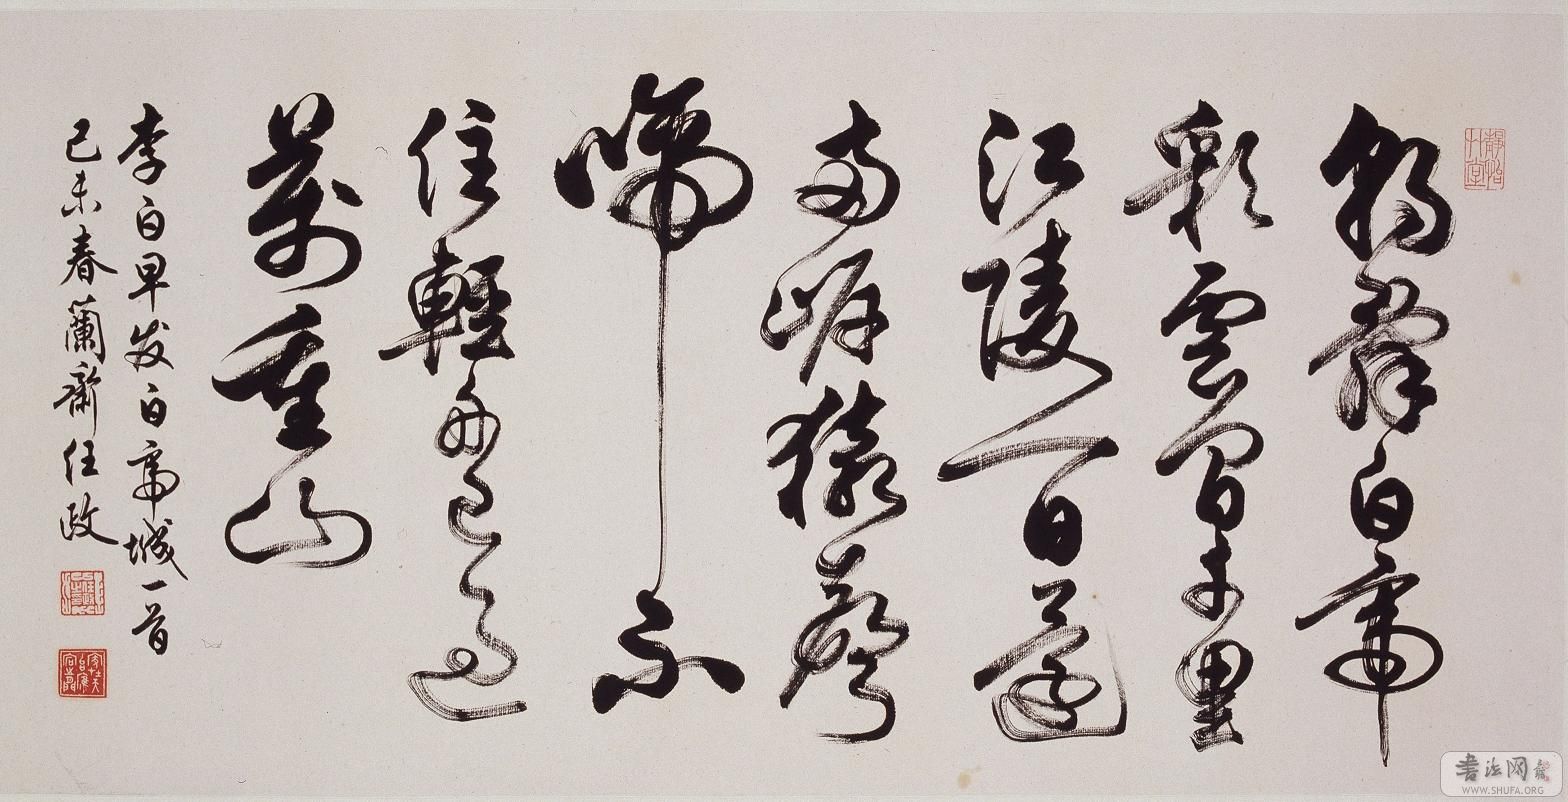 朝辭白帝
彩雲間千里
江陵一日還
兩岸猿聲
啼不
住輕舟已過
萬重山
李白早发白帝城一首
己未春蘭齋任政
書法网
WWW.SHUFA.ORG